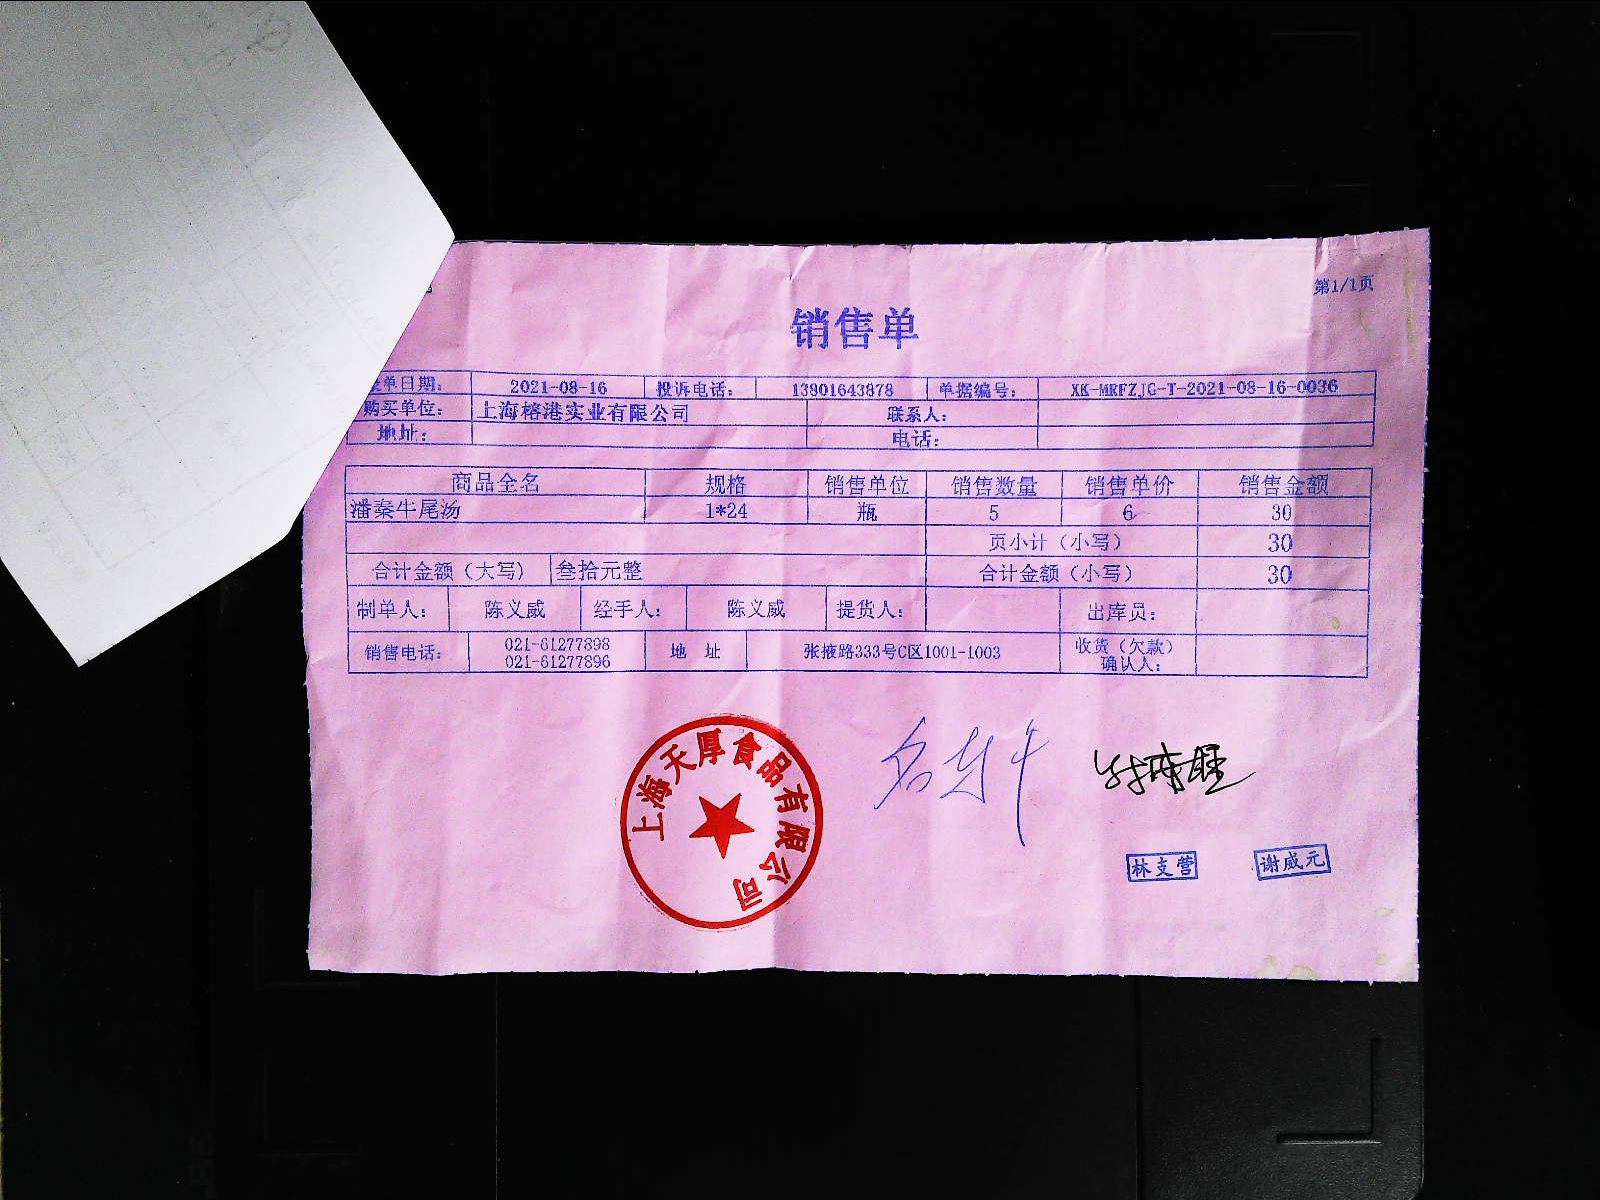 第1/1页
销售单
单日期： 2021-08-16 投诉电话： 13801643878 单据编号： XK-MRFZJG-T-2021-08-16-0036
购买单位： 上海榕港实业有限公司 联系人：
地址： 电话：
商品全名 规格 销售单位 销售数量 销售单价 销售金额
潘秦牛尾汤 1*24 瓶 5 6 30
页小计（小写） 30
合计金额（大写） 叁拾元整 合计金额（小写） 30
制单人： 陈义威 经手人： 陈义威 提货人： 出库员：
销售电话： 021-61277898 地 址 张掖路333号C区1001-1003 收货（欠款）
021-61277896 确认人：
上海天厚食品有限公司
林支营 谢威元